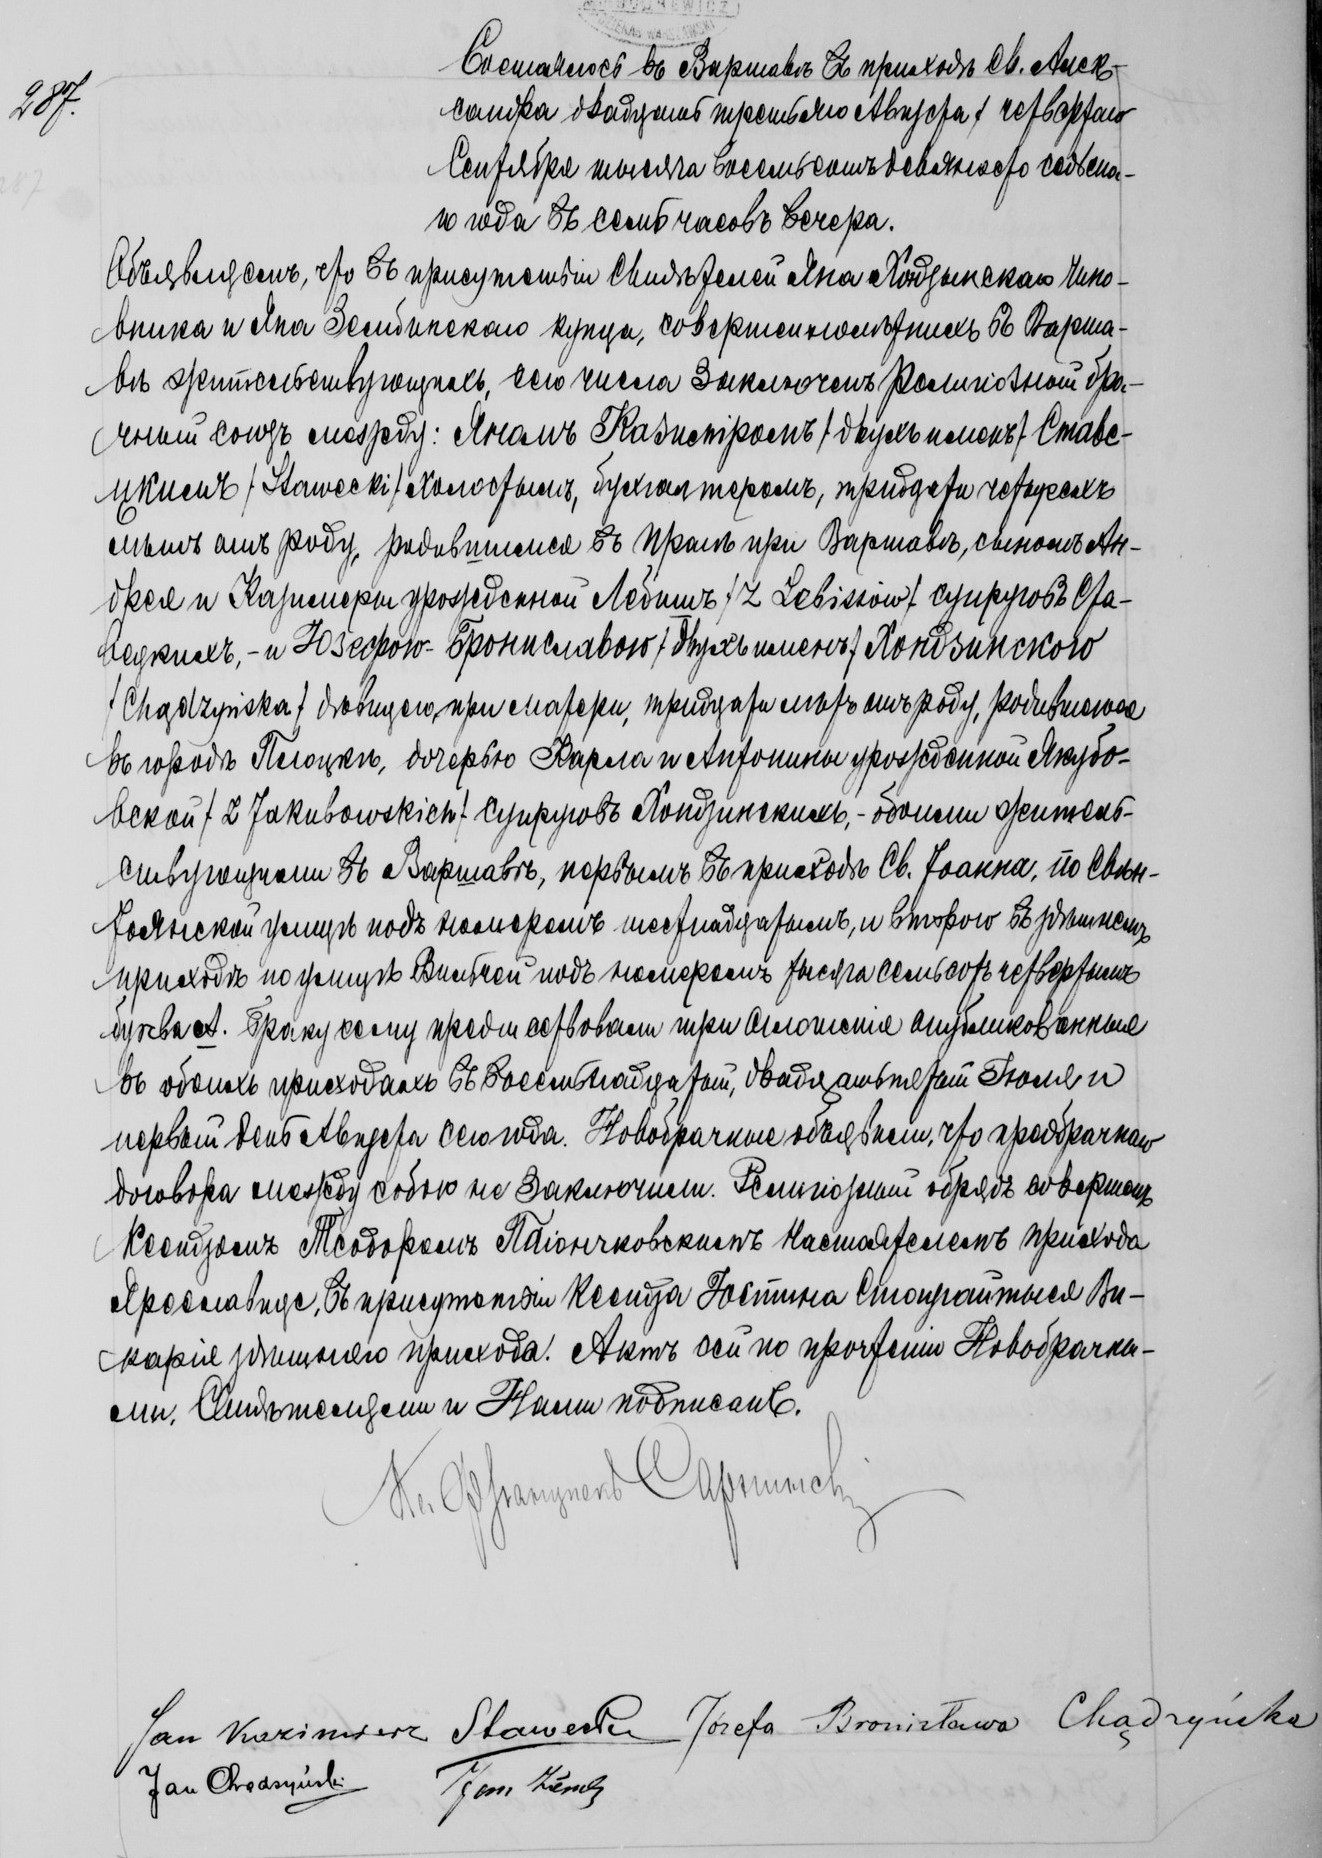 287.
Состоялось въ Варшавѣ въ приходѣ Св. Алек-
сандра двадцать третьяго Августа / четвертаго
Сентября тысяча восемьсотъ девяносто седьма-
го года въ семь часовъ вечера.
Объявляемъ, что въ присутствіи свидѣтелей Яна Хондзынскаго чино-
вника и Яна Зембинскаго купца, совершеннолѣтнихъ въ Варша-
вѣ жительствующихъ, сего числа заключенъ религіозный бра-
чный союзъ между: Яномъ Казимѣромъ / двухъ именъ / Ставе-
цкимъ / Stawecki / холостымъ, бухгалтеромъ, тридцати четырехъ
лѣтъ отъ роду, родившимся въ Прагѣ при Варшавѣ, сыномъ Ан-
дрея и Казимеры урожденной Лебишъ / z Lebissów / супруговъ Ста-
вецкихъ, - и Юзефою-Брониславою / двухъ именъ / Хондзинскою
/ Chądzyńska / дѣвицею, при матери, тридцати лѣтъ отъ роду, родившеюся
въ городѣ Плоцкѣ, дочерью Карла и Антонины урожденной Якубо-
вской / z Jakubowskich / супруговъ Хондзинскихъ, - обоими житель-
ствующими въ Варшавѣ, первымъ въ приходѣ Св. Іоанна, по Свен-
тоянской улицѣ подъ номеромъ шестнадцатымъ, и второю въ здѣшнемъ
приходѣ по улицѣ Вильчей подъ номеромъ тысяча семьсотъ четвертымъ
буква А. Браку сему предшествовали три оглашенія опубликованныя
въ обоихъ приходахъ въ восемнадцатый, двадцатьпятый Іюля и
первый день Августа сего года. Новобрачные объявили, что предбрачнаго
договора между собою не заключили. Религіозный обрядъ совершенъ
Ксендзомъ Теодоромъ Піонтковскимъ Настоятелемъ прихода
Ярославице, въ присутствіи Ксендза Юстина Викарія
здѣшняго прихода. Актъ сей по прочтеніи Новобрачны-
ми, Свидѣтелями и Нами подписанъ.
Кс. Францишекъ
Jan Kazimierz Stawecki Józefa Bronisława Chądzyńska
Jan Chądzyński Jan